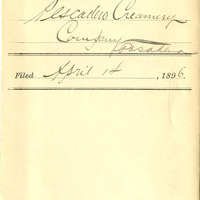 Pescadero Creamery
Company
Pasadena
Filed April 14, 1896.